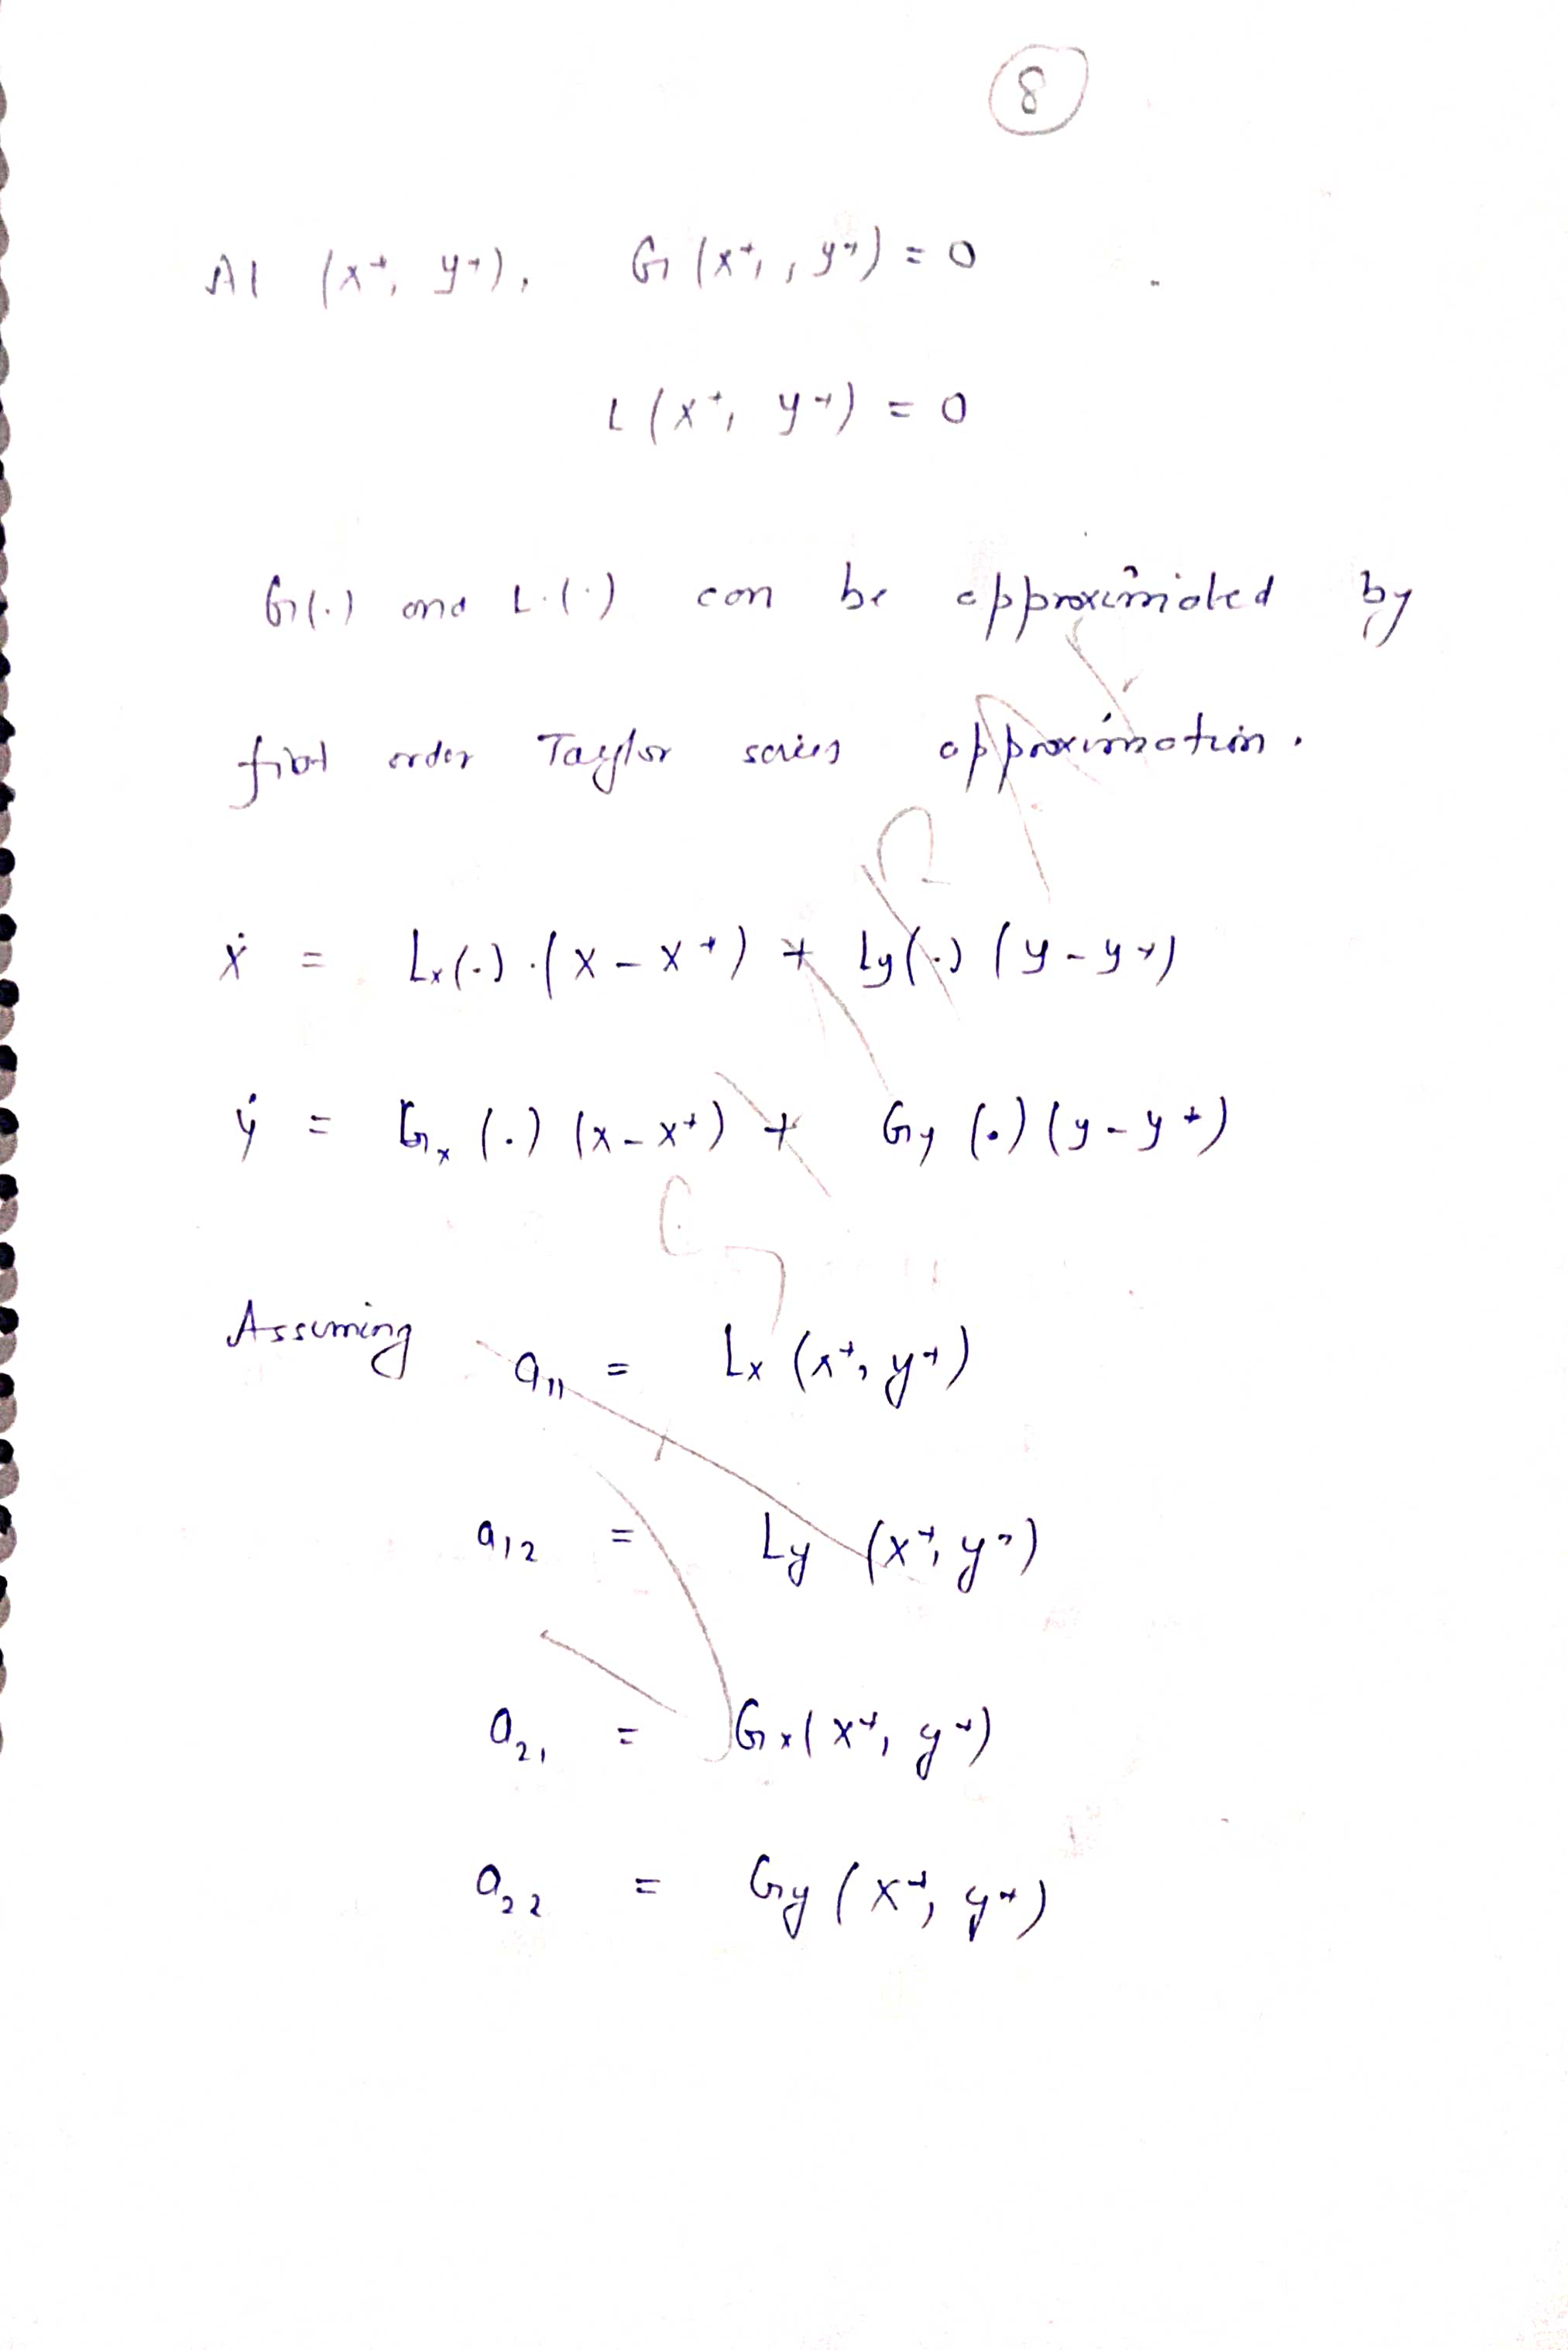 8
At (x*, y*), G(x*, y*) = 0
L(x*, y*) = 0
G(.) and L(.) can be approximated by
first order Taylor series approximation.
ẋ = Lx(.).(x - x*) + Ly(.) (y - y*)
ẏ = Gx (.) (x - x*) + Gy (.) (y - y*)
Assuming a11 = Lx (x*, y*)
a12 = Ly (x*, y*)
a21 = Gx(x*, y*)
a22 = Gy (x*, y*)